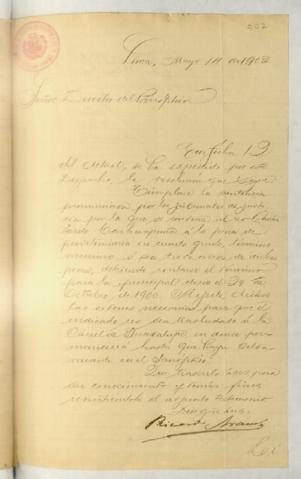 Lima, Mayo 14 de 1902
Señor Director del Panóptico
Con fecha 12
del actual, se ha expedido por este
Despacho, la resolución que sigue
Cúmplase la sentencia
pronunciada por los Tribunales de justi
cia por la que se condena al reo
á la pena de
penitenciaría en cuarto grado, término
mínimo, ó sea trece años de dicha
pena, debiendo contarse el término
para la principal desde el 29 de
Octubre de 1900.
las órdenes necesarias para que el
indicado reo sea trasladado á la
Cárcel de Guadalupe en donde per
manecerá hasta que haya celda
vacante en el Panóptico
Que trascribo á Ud para
su conocimiento y demás fines
remitiéndole el adjunto testimonio
Dios gũe á Ud.
Ricardo